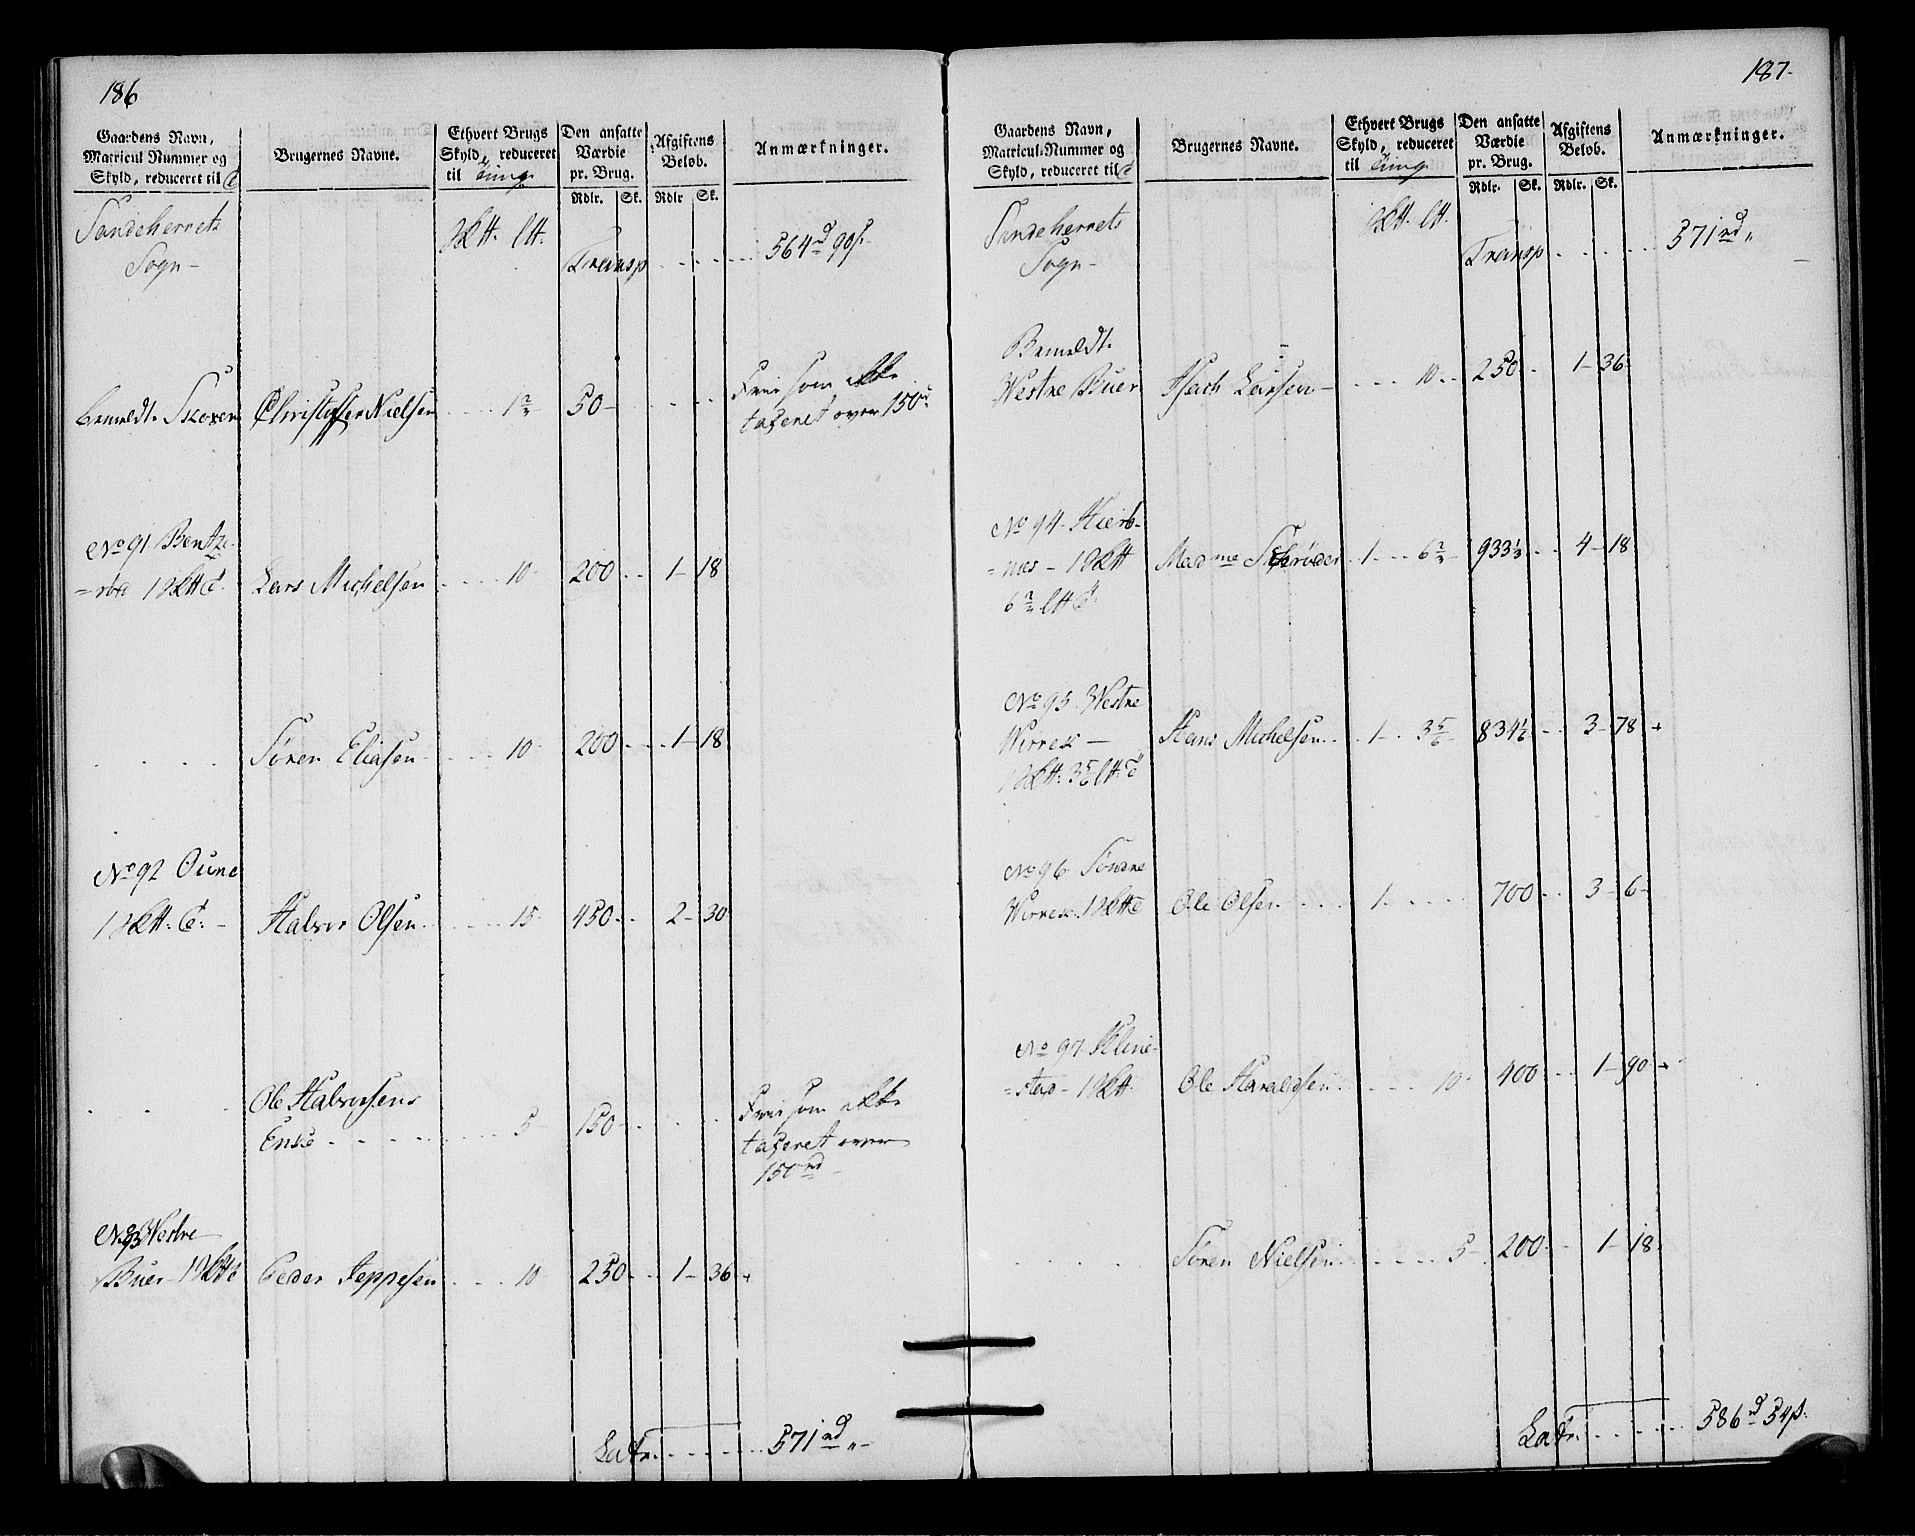 186
Gaardens Navn,
Matricul-Nummer og
Skyld, reduceret til
Brugernes Navne.
Ethvert Brugs
Skyld, reduceret
til Tung
Den ansatte
Værdie
pr. Brug.
Rdlr. Sk.
Afgiftens
Beløb.
Rdlr Sk.
Anmærkninger.
Sandeherrets
Sogn -
Transp . . . . . 564 rd 90 s.
bemeldt. Skoxen Christopher Nielsen . . . . 1 2/3 50 -
Frie som ikke
taxeret over 150 rd
No 91 Bentze-
= rød Lars Michelsen . . . . 10 200 . . 1 - 18
. . . . Søren Eliasen . . . . 10 200 . . 1 - 18
No 92 Oune
Halvor Olsen . . . . 15 450 . . 2 - 30
Ole Halvorsens
Enke . . . . . 5 150 -
Frie som ikke
taxeret over
150 rd
No 93 Westre
Buer Peder Jeppesen . . . 10 250 . . 1 - 36
Latr. . . . . 571 rd „ -
187.
Gaardens Navn,
Matricul-Nummer og
Skyld, reduceret til
Brugernes Navne.
Ethvert Brugs
Skyld, reduceret
til Tung
Den ansatte
Værdie
pr. Brug.
Rdlr. Sk.
Afgiftens
Beløb.
Rdlr. Sk.
Anmærkninger.
Sandeherrets
Sogn -
Transp . . . . . 571 rd „
Bemeldt.
Westre Buer Isach Larsen - . . . 10 . . 250 . 1 - 36
No 94
= næs - Mad me Schrøder 1 . . . 6 2/3 933 1/3 . . 4 - 18
6 2/3
No 95 Westre
Wirrex - Hans Michelsen . . 1 . . 3 5/6 834 1/6 . . 3 - 78
No 96 Søndre
Wirrex. Ole Olsen . . . 1 . . . . 700 . . 3 - 6 -
No 97 Kline-
= stad - Ole Haraldsen . . . . 10 400 . . 1 - 90
. . . . Søren Nielsen . . . . 5 - 200 . . 1 - 18
Latr. . . . . 586 rd 54 s.